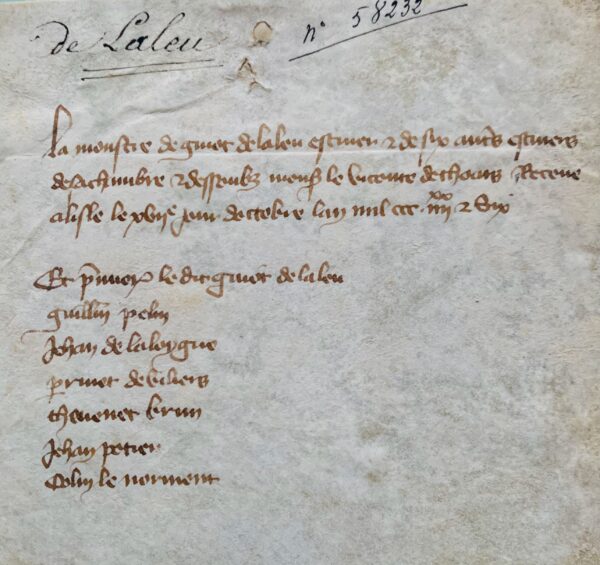 de Laleu
n° 58232
La monstre de guiot delaleu escuier & de six autres escuiers
delachambre & dessoubz mons le viconte de thouars Receue
alisle le xviie jour doctobre lan mil ccc iiiixx & Six
Et premier le dit guiot de laleu
guillin pelin
Jehan de laloygue
perrinet de viliers
thevenet brun
Jehan potier
Colin le norment